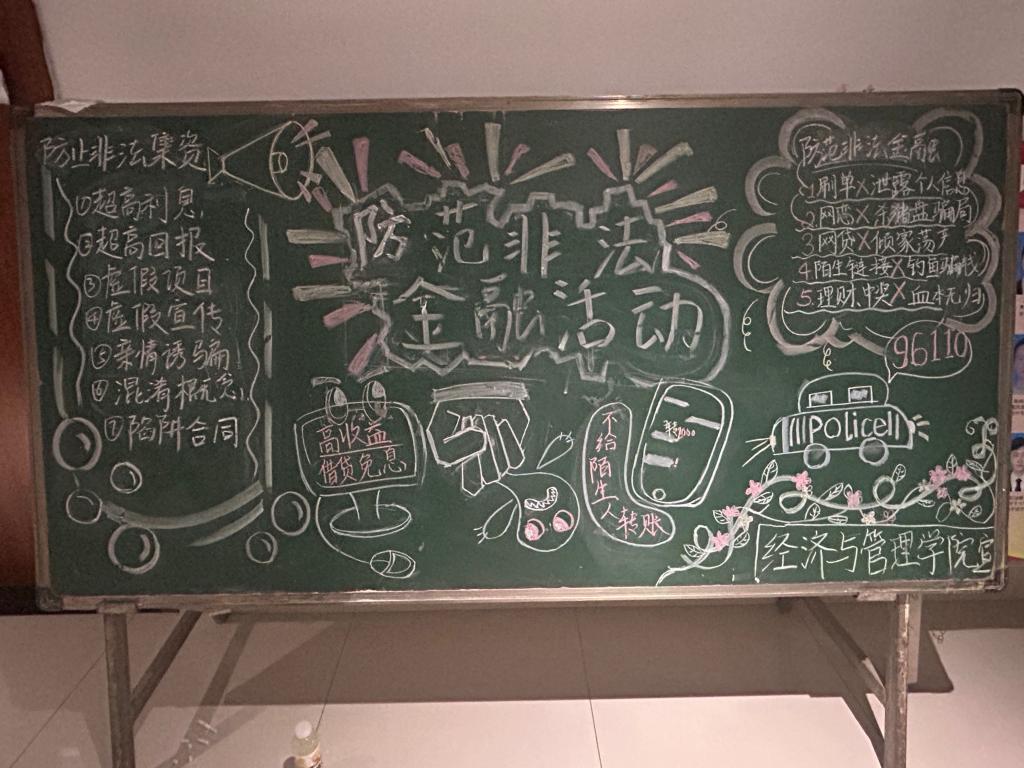 防止非法集资
①超高利息
②超高回报
③虚假项目
④虚假宣传
⑤亲情诱骗
⑥混淆概念
⑦陷阱合同
防范非法
金融活动
高收益
借贷免息
不给陌生人转账
防范非法金融
1.刷单X泄露个人信息
2.网恋X杀猪盘骗局
3.网贷X倾家荡产
4.陌生链接X钓鱼骗钱
5.理财中奖X血本无归
96110
Police
经济与管理学院宣